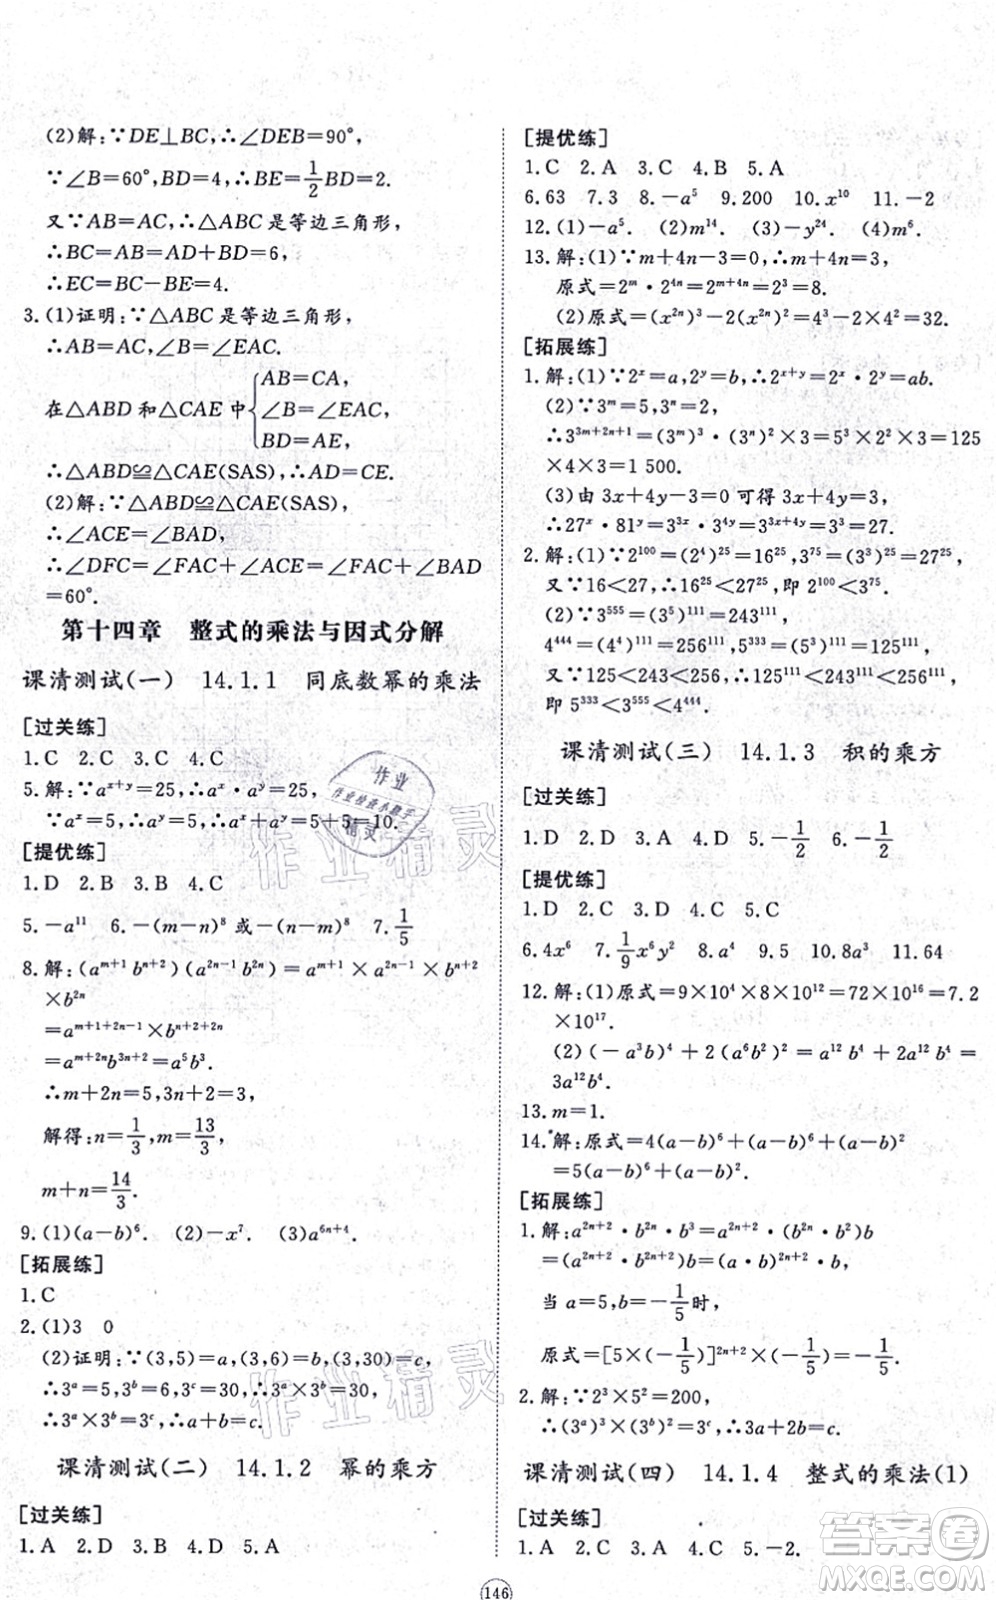 (2)解:∵DE⊥BC,∴∠DEB=90°,
∵∠B=60°,BD=4,∴BE=1/2BD=2.
又∵AB=AC,∴△ABC是等边三角形,
∴BC=AB=AD+BD=6,
∴EC=BC−BE=4.
3.(1)证明:∵△ABC是等边三角形,
∴AB=AC,∠B=∠EAC.
在△ABD和△CAE中{AB=CA,
∠B=∠EAC,
BD=AE,
∴△ABD≌△CAE(SAS),∴AD=CE.
(2)解:∵△ABD≌△CAE(SAS),
∴∠ACE=∠BAD,
∴∠DFC=∠FAC+∠ACE=∠FAC+∠BAD
=60°.
第十四章 整式的乘法与因式分解
课清测试(一) 14.1.1 同底数幂的乘法
[过关练]
1.C 2.C 3.C 4.C
5.解:∵a^{x+y}=25,∴a^x·a^y=25,
∵a^x=5,∴a^y=5,∴a^x+a^y=5+5=10.
[提优练]
1.D 2.B 3.B 4.C
5.−a^{11} 6.−(m−n)^8或−(n−m)^8 7.1/5
8.解:(a^{m+1}b^{n+2})(a^{2n−1}b^{2n})=a^{m+1}×a^{2n−1}×b^{n+2}
×b^{2n}
=a^{m+1+2n−1}×b^{n+2+2n}
=a^{m+2n}b^{3n+2}=a^5b^3.
∴m+2n=5,3n+2=3,
解得:n=1/3,m=13/3,
m+n=14/3.
9.(1)(a−b)^6. (2)−x^7. (3)a^{6n+4}.
[拓展练]
1.C
2.(1)3 0
(2)证明:∵(3,5)=a,(3,6)=b,(3,30)=c,
∴3^a=5,3^b=6,3^c=30,∴3^a×3^b=30,
∴3^a×3^b=3^c,∴a+b=c.
课清测试(二) 14.1.2 幂的乘方
[过关练]
1.A 2.D 3.B 4.D 5.A
[提优练]
1.C 2.A 3.C 4.B 5.A
6.63 7.3 8.−a^5 9.200 10.x^{10} 11.−2
12.(1)−a^5. (2)m^{14}. (3)−y^{24}. (4)m^6.
13.解:(1)∵m+4n−3=0,∴m+4n=3,
原式=2^m·2^{4n}=2^{m+4n}=2^3=8.
(2)原式=(x^{2n})^3−2(x^{2n})^2=4^3−2×4^2=32.
[拓展练]
1.解:(1)∵2^x=a,2^y=b,∴2^{x+y}=2^x·2^y=ab.
(2)∵3^m=5,3^n=2,
∴3^{3m+2n+1}=(3^m)^3·(3^n)^2×3=5^3×2^2×3=125
×4×3=1 500.
(3)由3x+4y−3=0可得3x+4y=3,
∴27^x·81^y=3^{3x}·3^{4y}=3^{3x+4y}=3^3=27.
2.解:(1)∵2^{100}=(2^4)^{25}=16^{25},3^{75}=(3^3)^{25}=27^{25},
又∵16<27,∴16^{25}<27^{25},即2^{100}<3^{75}.
(2)∵3^{555}=(3^5)^{111}=243^{111},
4^{444}=(4^4)^{111}=256^{111},5^{333}=(5^3)^{111}=125^{111},
又∵125<243<256,∴125^{111}<243^{111}<256^{111},
即5^{333}<3^{555}<4^{444}.
课清测试(三) 14.1.3 积的乘方
[过关练]
1.D 2.D 3.A 4.D 5.−1/2 6.−1/2
[提优练]
1.D 2.B 3.D 4.C 5.C
6.4x^6 7.1/9x^6y^2 8.a^4 9.5 10.5 11.64
12.解:(1)原式=9×10^4×8×10^{12}=72×10^{16}=7.2
×10^{17}.
(2)(−a^3b)^4+2(−a^6b^2)^2=a^{12}b^4+2a^{12}b^4=
3a^{12}b^4.
13.m=1.
14.解:原式=4(a−b)^6+(a−b)^6+(a−b)^2
=5(a−b)^6+(a−b)^2.
[拓展练]
1.解:a^{2n+2}·b^{2n}·b^3=a^{2n+2}·(b^{2n+2})b
=(a^{2n+2}·b^{2n+2})b=(ab)^{2n+2}b,
当a=5,b=−1/5时,
原式=[5×(−1/5)]^{2n+2}×(−1/5)=−1/5.
2.解:∵2^3×5^2=200,
∴(3^a)^3×(3^b)^2=3^c,∴3a+2b=c.
课清测试(四) 14.1.4 整式的乘法(1)
[过关练]
1.A 2.D 3.A 4.C 5.−2.
146
作业精灵
作业精灵
作业
精灵
答案圈
MXQE.COM